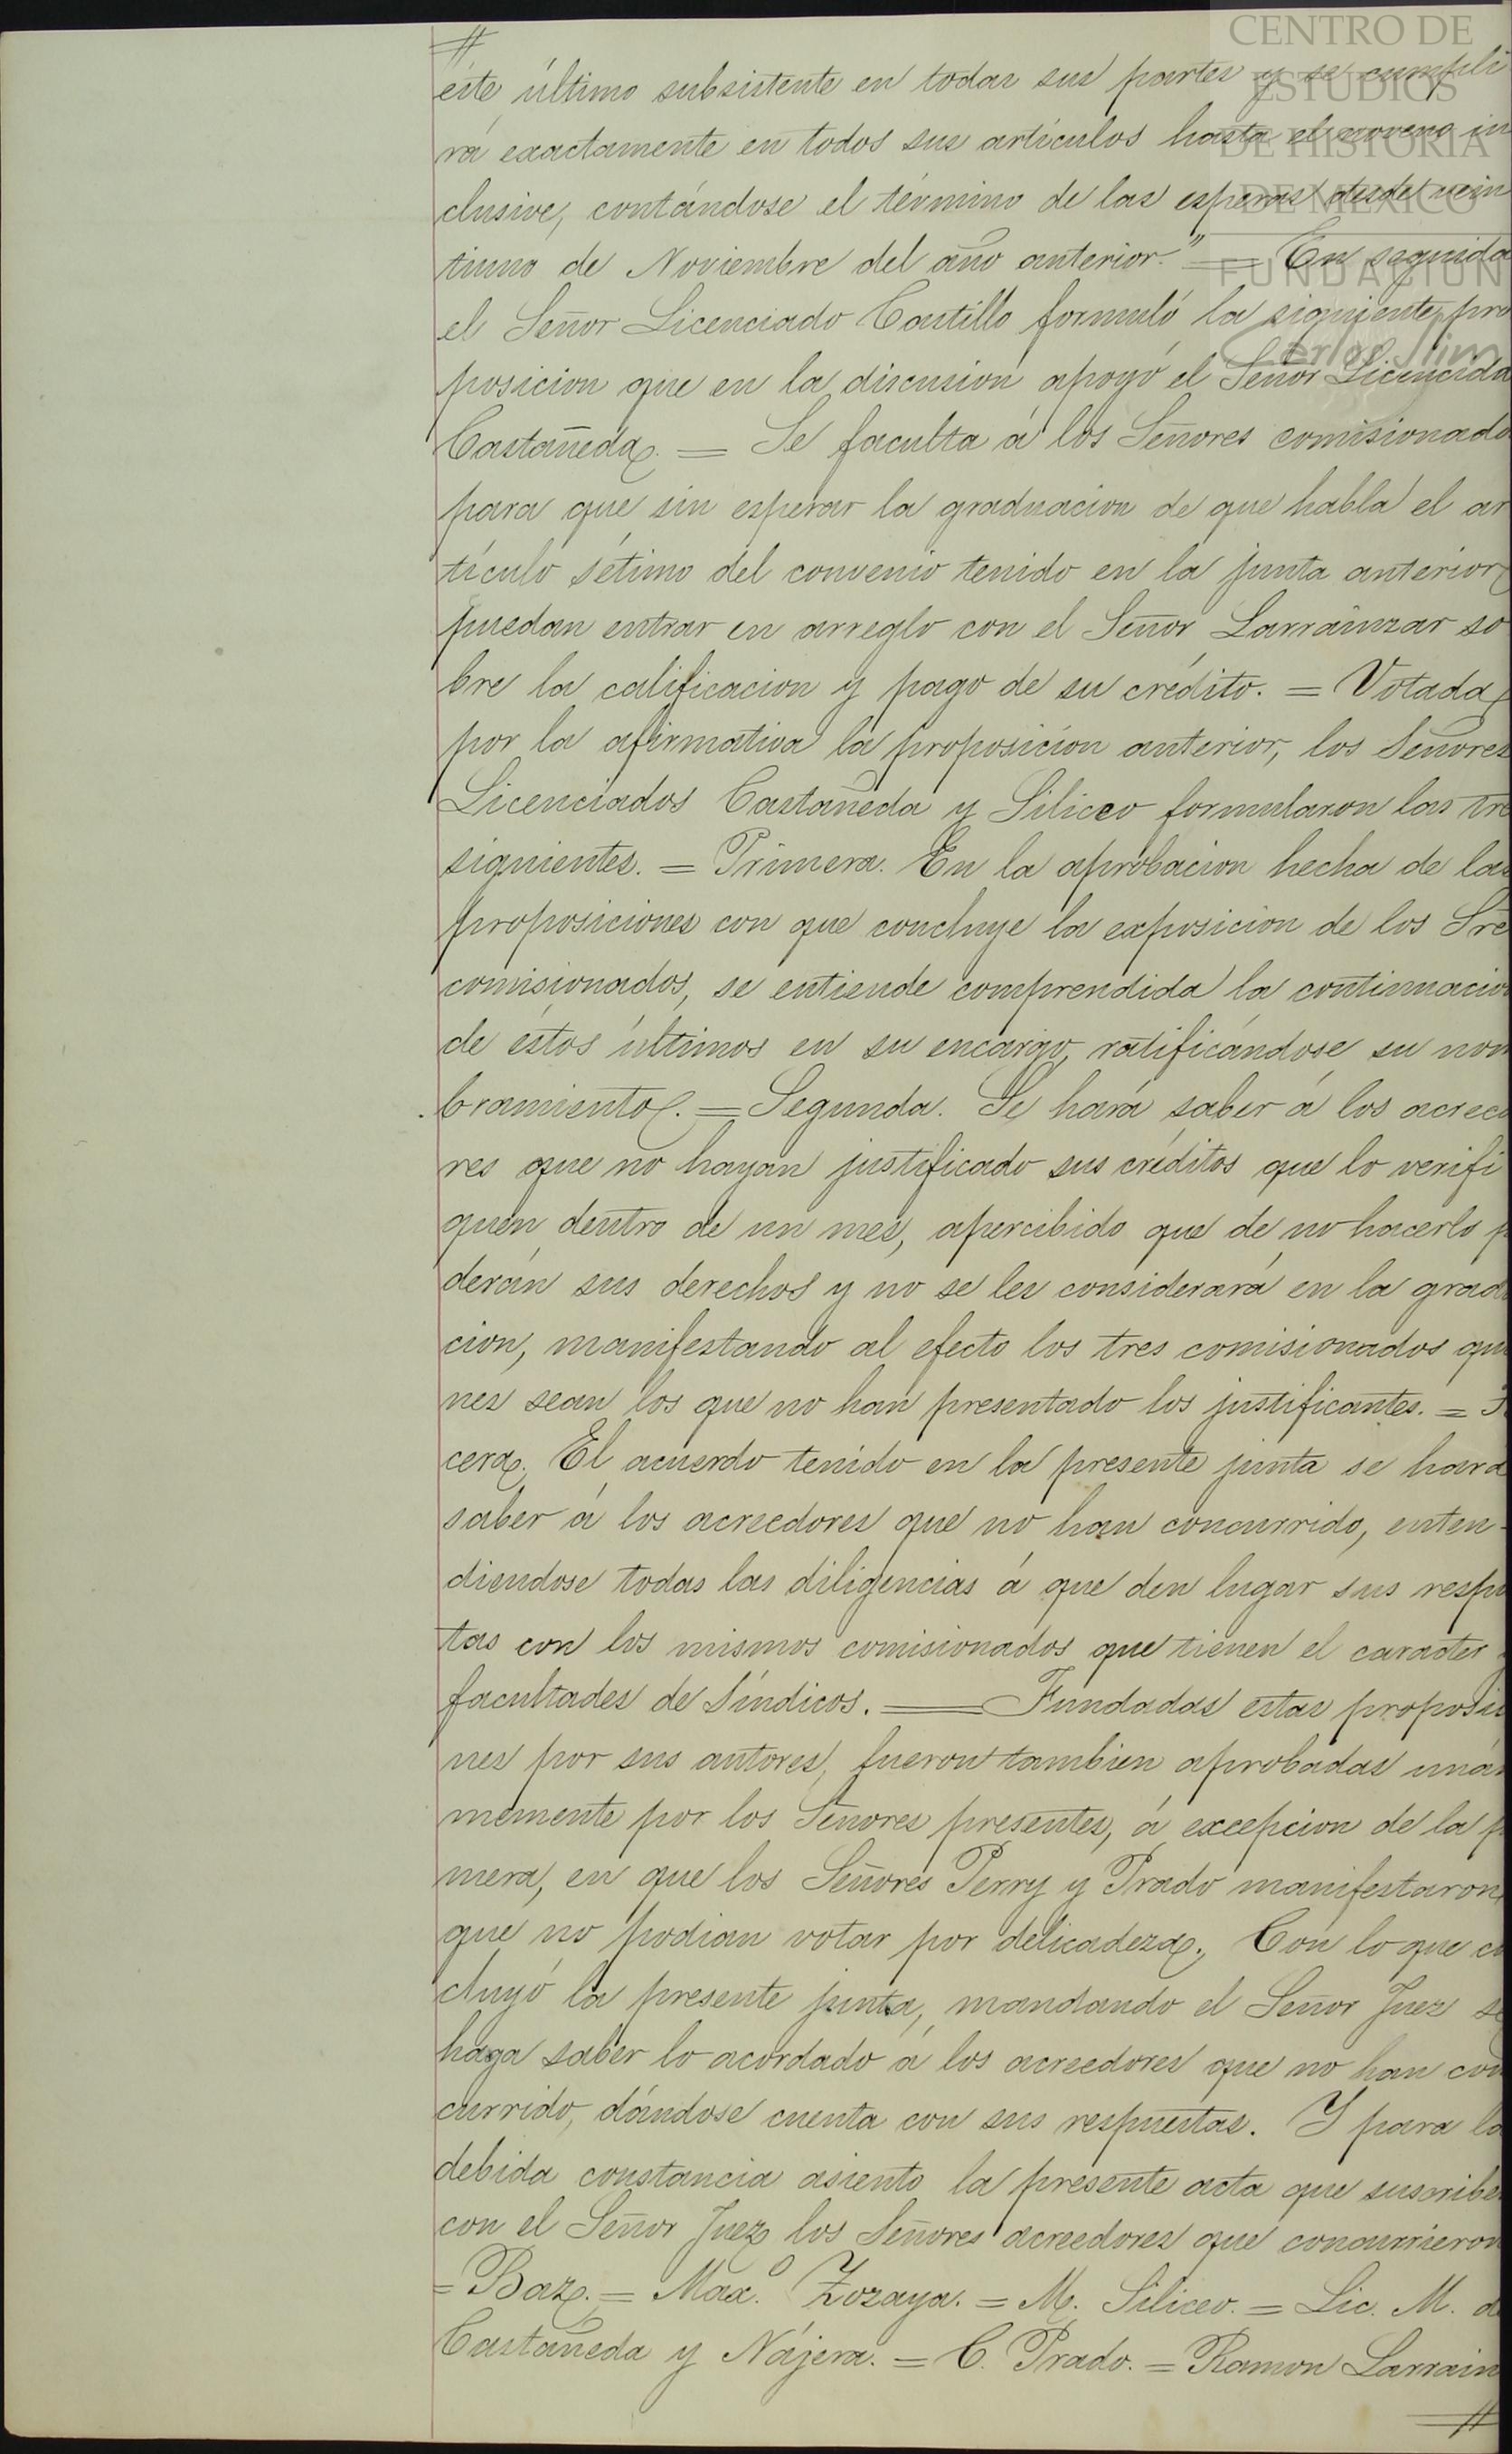 CENTRO DE
ESTUDIOS
DE HISTORIA
DE MEXICO
FUNDACION
Carlos Slim
//
éste último subsistente en todas sus partes y se cumpli
rá exactamente en todos sus artículos hasta el noveno in
clusive, contándose el término de las esperas desde vein
tiuno de Noviembre del año anterior." = En seguida
el Señor Licenciado Castillo formuló la siguiente pro
posicion que en la discusion apoyó el Señor Licenciado
Castañeda. = Se faculta á los Señores comisionado
para que sin esperar la graduacion de que habla el ar
tículo sétimo del convenio tenido en la junta anterior
puedan entrar en arreglo con el Señor Larrainzar so
bre la calificacion y pago de su crédito. = Votada
por la afirmativa la proposicion anterior, los Señores
Licenciados Castañeda y Siliceo formularon las tre
siguientes. = Primera. En la aprobacion hecha de las
proposiciones con que concluye la exposicion de los Sre
comisionados, se entiende comprendida la continuacion
de éstos últimos en su encargo, ratificándose su nom
bramiento. = Segunda. Se hará saber á los acreed
res que no hayan justificado sus créditos que lo verifi
quen dentro de un mes, apercibido que de no hacerlo p
derán sus derechos y no se les considerará en la gradu
cion, manifestando al efecto los tres comisionados quie
nes sean los que no han presentado los justificantes. = T
cera. El acuerdo tenido en la presente junta se hará
saber á los acreedores que no han concurrido, enten-
diendose todas las diligencias á que den lugar sus respu
tas con los mismos comisionados que tienen el caracter
facultades de Síndicos. = Fundadas estas proposici
nes por sus autores, fueron tambien aprobadas unán
memente por los Señores presentes, á excepcion de la p
mera, en que los Señores Perry y Prado manifestaron
que no podian votar por delicadeza. Con lo que co
cluyó la presente junta, mandando el Señor Juez se
haga saber lo acordado á los acreedores que no han con
currido, dándose cuenta con sus respuestas. Y para la
debida constancia asiento la presente acta que suscribe
con el Señor Juez los Señores acreedores que concurrieron
= Baz. = Max.º Zozaya. = M. Siliceo. = Lic. M. de
Castañeda y Nájera. = C. Prado. = Ramon Larrain
//